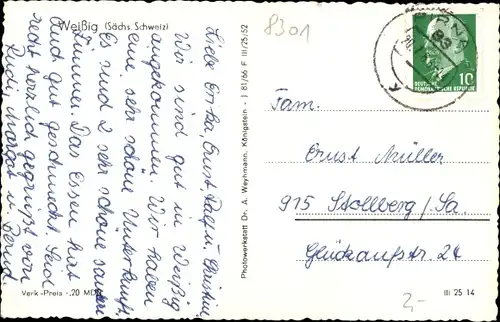 Weißig (Sächs. Schweiz)
Liebe Erika, Ernst, Ralf u. Christine
Wir sind gut in Weißig
angekommen. Wir haben
eine sehr schöne Unterkunft
Es sind 2 sehr schöne saubere
Zimmer. Das Essen hat
auch gut geschmeckt. Seid
recht herzlich gegrüßt von
Rudi, Margot u. Bernd.
Verk.-Preis -,20 MDN
Photowerkstatt Dr. A. Weyhmann, Königstein - J 81/66 F III/25/52
8301
PIRNA
83
10
DEUTSCHE
DEMOKRATISCHE REPUBLIK
Fam.
Ernst Müller
915 Stollberg/Sa.
Glückaufstr. 24
III 25 14
2,-